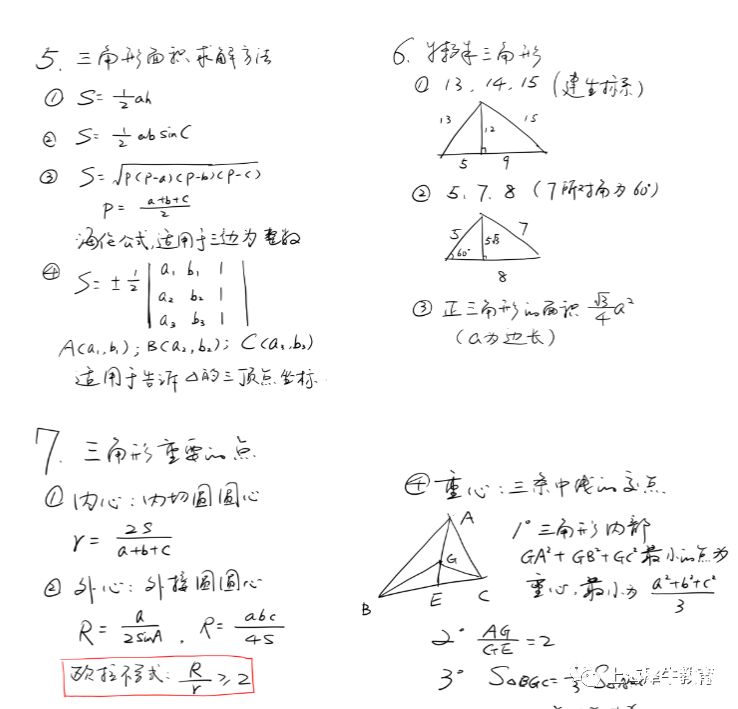 5. 三角形面积求解方法
① S= 1/2 ah
② S= 1/2 ab sinC
③ S=√P(P-a)(P-b)(P-c)
P= a+b+c / 2
海伦公式,适用于三边为整数
④ S= ± 1/2 | a₁ b₁ 1 |
| a₂ b₂ 1 |
| a₃ b₃ 1 |
A(a₁,b₁); B(a₂,b₂); C(a₃,b₃)
适用于告诉△的三顶点坐标.
6. 特殊三角形
① 13、14、15 (建坐标系)
13 12 15
5 9
② 5、7、8 (7所对角为60°)
5 7
60°
8
③ 正三角形的面积 √3/4 a²
(a为边长)
7. 三角形重要的点
① 内心:内切圆圆心
r= 2S / a+b+c
② 外心:外接圆圆心
R= a / 2sinA , R= abc / 4S
欧拉不等式: R/r ≥2
④ 重心:三条中线的交点
A
G
B E C
1° 三角形内部
GA²+GB²+GC² 最小的点为
重心,最小为 a²+b²+c² / 3
2° AG/GE =2
3° S△BGC= 1/3 S△